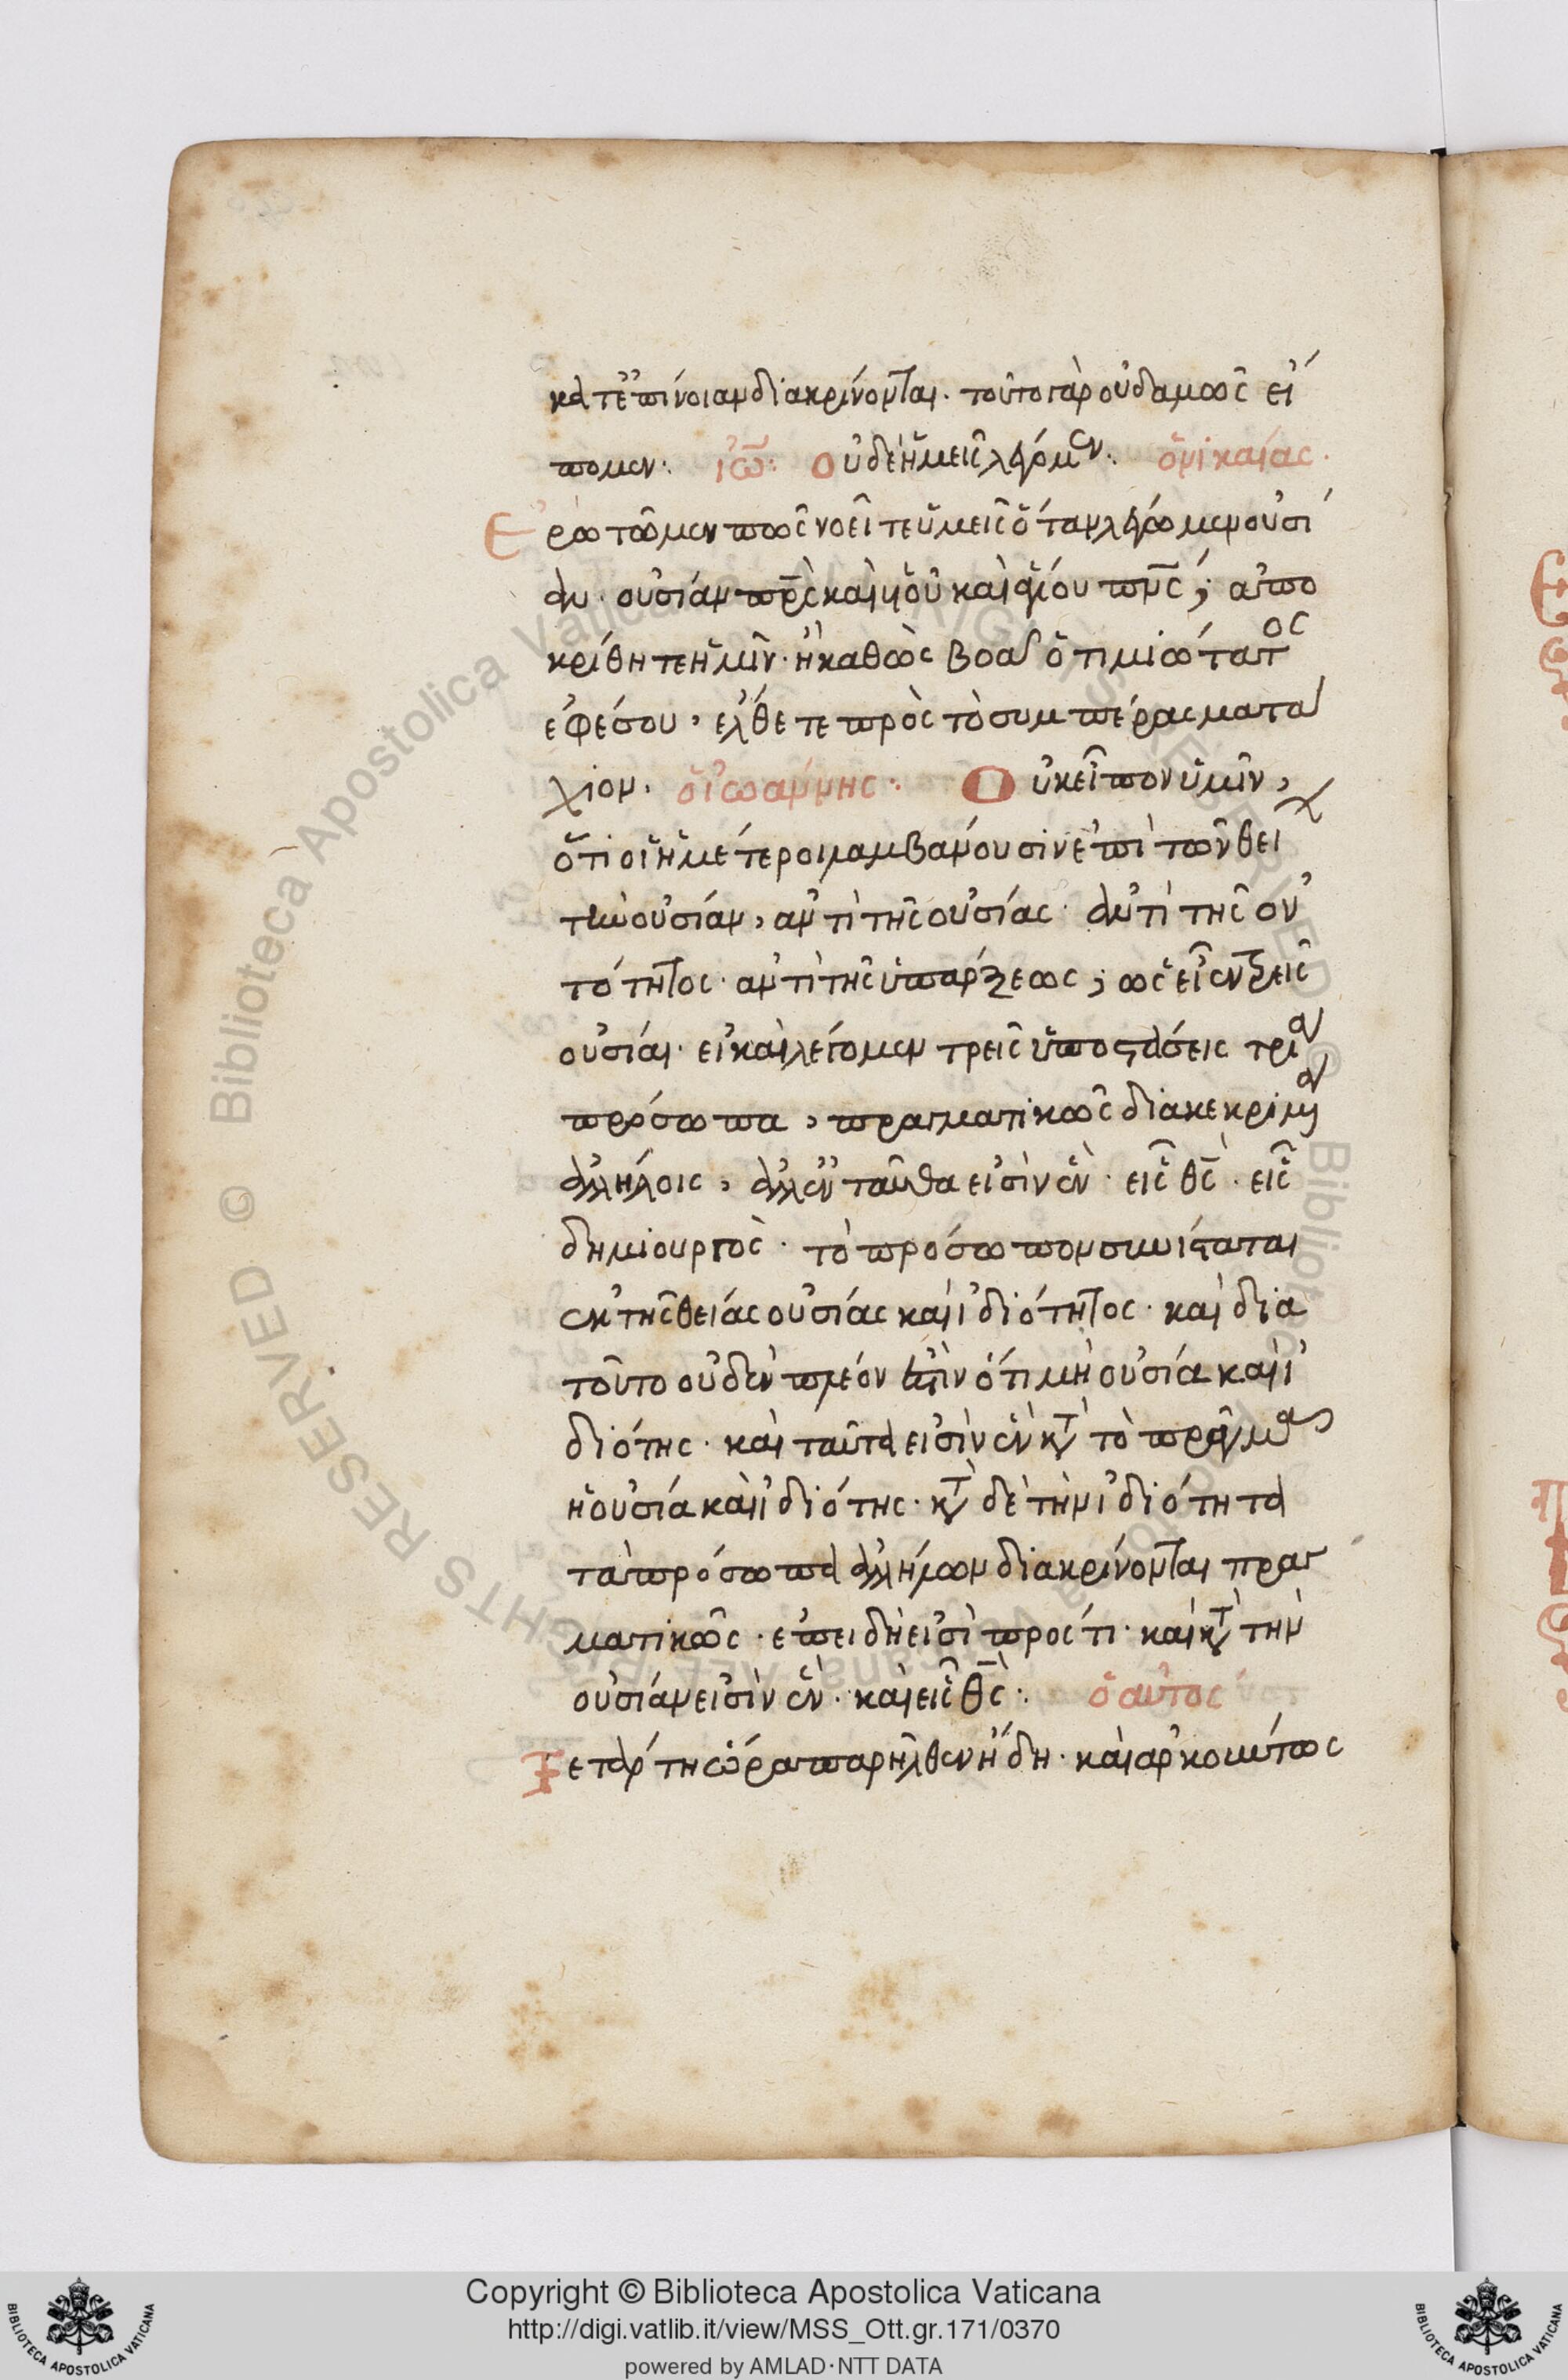 κατ' ἐπίνοιαν διακρίνονται. τοῦτο γὰρ οὐδαμῶς εἴ
πομεν: ἰω̃: Οὐδὲ ἡμεῖς λέγομεν: ὁ νικαίας.
Ερωτῶμεν πῶς νοεῖτε ὑμεῖς ὅταν λέγωμεν οὐσί
αν. οὐσίαν πρ̅ς καὶ υἱοῦ καὶ ἁγίου πν̅ς; ἀπο
κρίθητε ἡμῖν. ἢ καθὼς βοᾷ ὁ τιμιώτατος
ἐφέσου, ἔλθετε πρὸς τὸ συμπέρασμα τα
χίον. ὁ ἰωάννης: Οὐκ εἶπον ὑμῖν,
ὅτι οἱ ἡμέτεροι λαμβάνουσιν ἐπὶ τῶν θεί
τὴν οὐσίαν, ἀντὶ τῆς οὐσίας. ἀντὶ τῆς ὀν
τότητος. ἀντὶ τῆς ὑπάρξεως; ὡς εἶεν τρεῖς
οὐσίαι. εἰ καὶ λέγομεν τρεῖς ὑποστάσεις τρία
πρόσωπα, πραγματικῶς διακεκριμένα
ἀλλήλοις, ἀλλ' ἐνταῦθα εἰσὶν ἓν. εἷς θς̅. εἷς
δημιουργὸς. τὸ πρόσωπον συνίσταται
ἐκ τῆς θείας οὐσίας καὶ ἰδιότητος. καὶ δια
τοῦτο οὐδὲν πλέον ἐστὶν ὅτι μὴ οὐσία καὶ ἰ
διότης. καὶ ταῦτα εἰσὶν ἓν κατὰ τὸ πρᾶγμα
ἡ οὐσία καὶ ἰδιότης. κατὰ δὲ τὴν ἰδιότητα
τὰ πρόσωπα ἀλλήλων διακρίνονται πραγ
ματικῶς. ἐπειδὴ εἰσὶ πρός τι. καὶ κατὰ τὴν
οὐσίαν εἰσὶν ἓν. καὶ εἷς θς̅: ὁ αὐτος
τετάρτη ὥρα παρῆλθεν ἤδη. καὶ ἀρκούντως
Copyright © Biblioteca Apostolica Vaticana
http://digi.vatlib.it/view/MSS_Ott.gr.171/0370
powered by AMLAD·NTT DATA